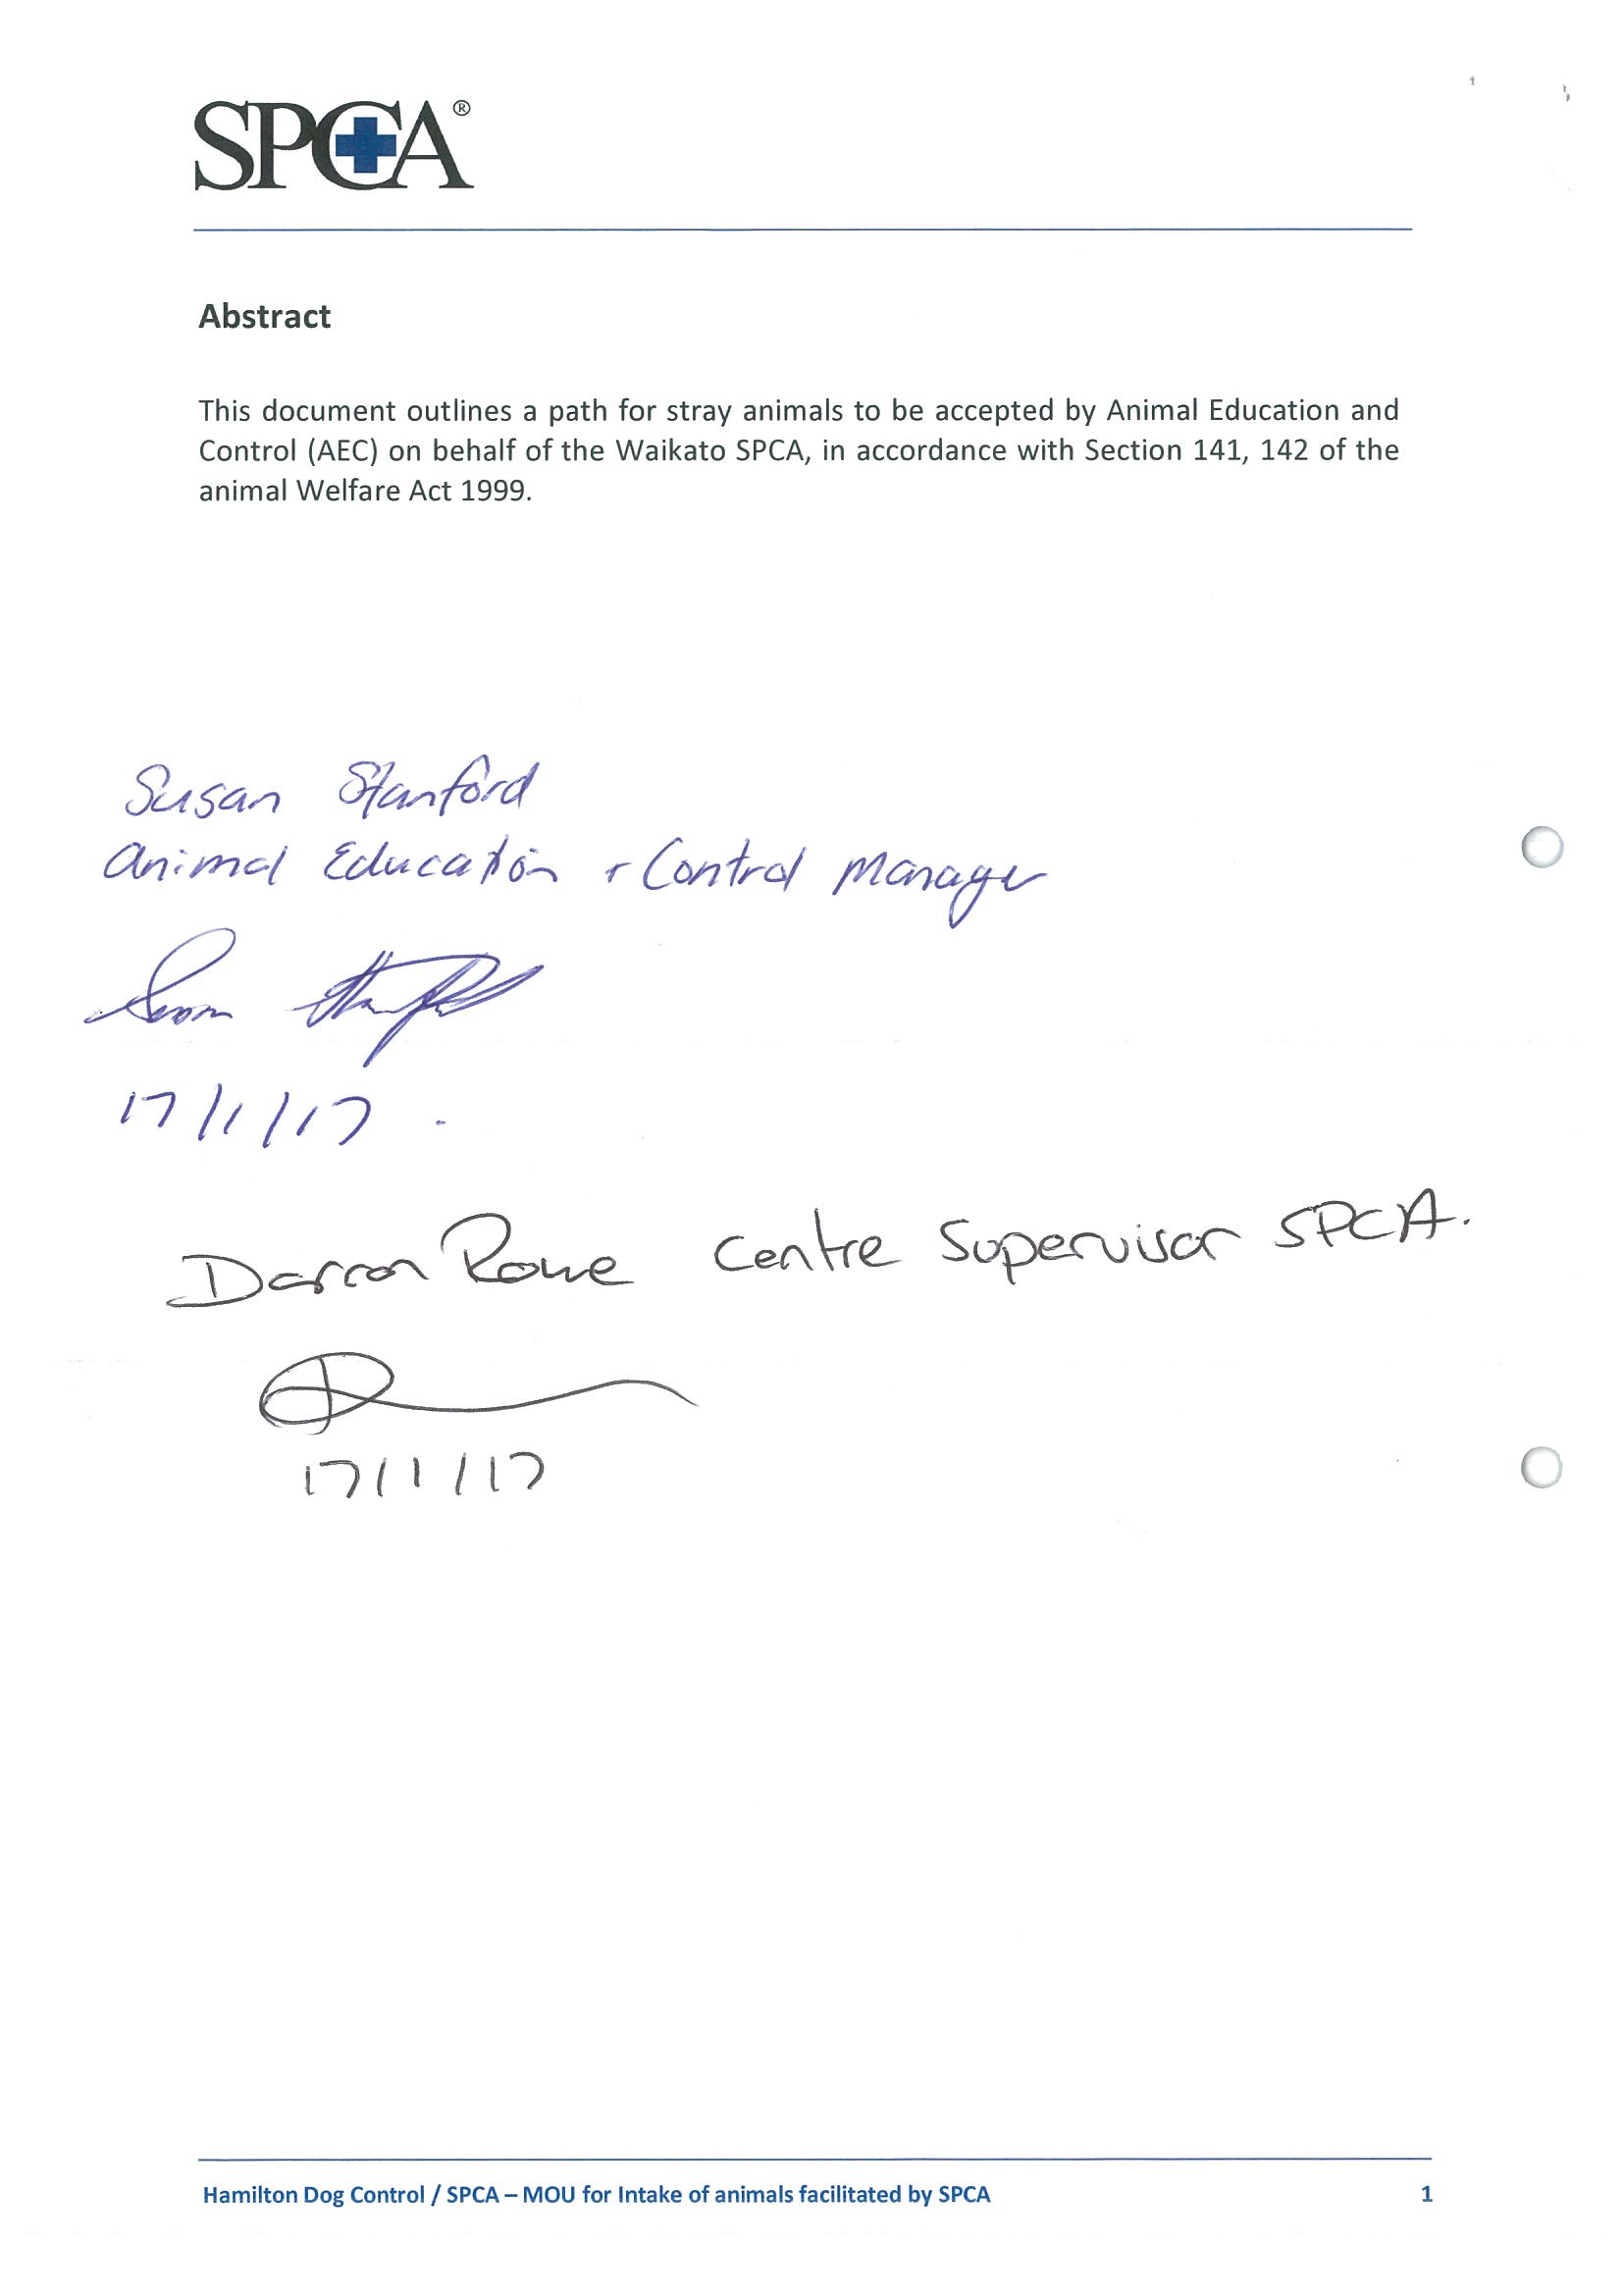 SPCA®
Abstract
This document outlines a path for stray animals to be accepted by Animal Education and
Control (AEC) on behalf of the Waikato SPCA, in accordance with Section 141, 142 of the
animal Welfare Act 1999.
Susan Stanford
Animal Education + Control Manager
17/1/17
Darron Rowe Centre Supervisor SPCA.
17/1/17
Hamilton Dog Control / SPCA – MOU for Intake of animals facilitated by SPCA 1